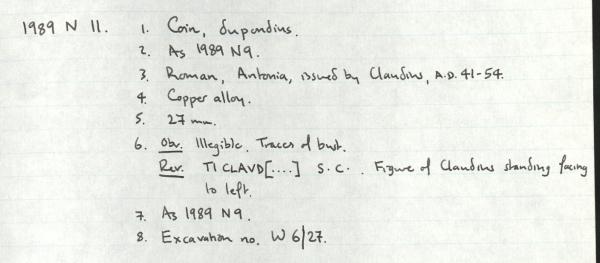 1989 N 11. 1. Coin, dupondius.
2. As 1989 N9.
3. Roman, Antonia, issued by Claudius, A.D. 41-54.
4. Copper alloy.
5. 27 mm.
6. Obv. Illegible. Traces of bust.
Rev. TI CLAVD[....] S.C. . Figure of Claudius standing facing
to left.
7. As 1989 N9.
8. Excavation no. W 6/27.